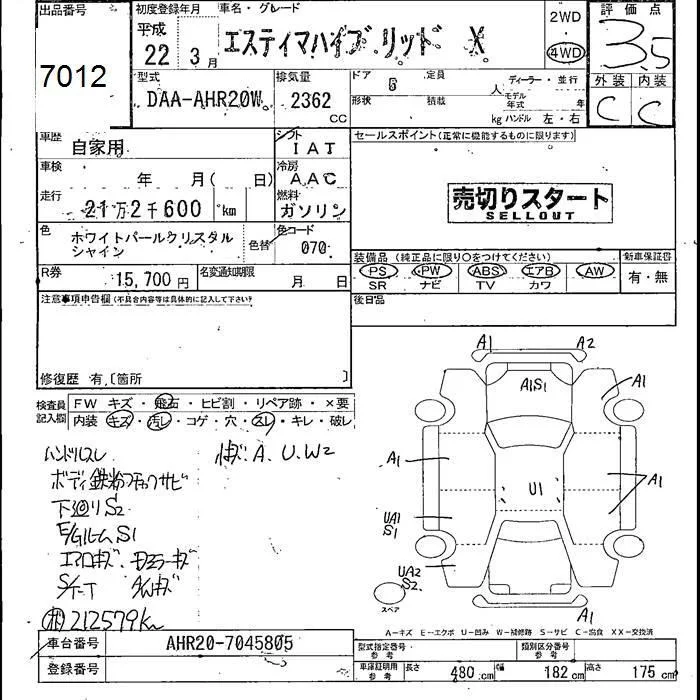 出品番号 初度登録年月 車名・グレード 2WD 評価点
7012 平成 22 3月 エスティマハイブリッド X 4WD 3.5
型式 排気量 ドア 定員 ディーラー・並行 外装 内装
DAA-AHR20W 2362 CC 6 人 モデル年式 年 C C
形状 積載 kg ハンドル 左・右
車歴 自家用 シフト IAT セールスポイント(正常に機能するものに限ります)
車検 年 月( 日) 冷房 AAC
走行 21万2千600 km 燃料 ガソリン
売切りスタート
SELLOUT
色 ホワイトパールクリスタル シャイン 色替 色コード 070
装備品 (純正品に限り○をつけてください) 新車保証書
R券 15,700円 名変通知期限 月 日
PS PW ABS エアB AW 有・無
SR ナビ TV カワ
注意事項申告欄(不具合内容等は具体的に記入して下さい) 後日品
修復歴 有.〔箇所 〕
検査員記入欄 FW キズ・飛石・ヒビ割・リペア跡・×要
内装 キズ・汚レ・コゲ・穴・スレ・キレ・破レ
ハンドルスレ
A.U.W2
下廻りS2
S1
エアロキズ.
A/Wキズ
212579km
A1 A2
A1S1
A1
A1 A1
U1
UA1
S1
UA2
S2.
スペア
A1
A-キズ E-エクボ U-凹み W-補修跡 S-サビ C-腐食 XX-交換済
車台番号 AHR20-7045805 型式指定番号 参考 類別区分番号 参考
登録番号 車庫証明用 参考 長さ 480.cm 幅 182.cm 高さ 175cm